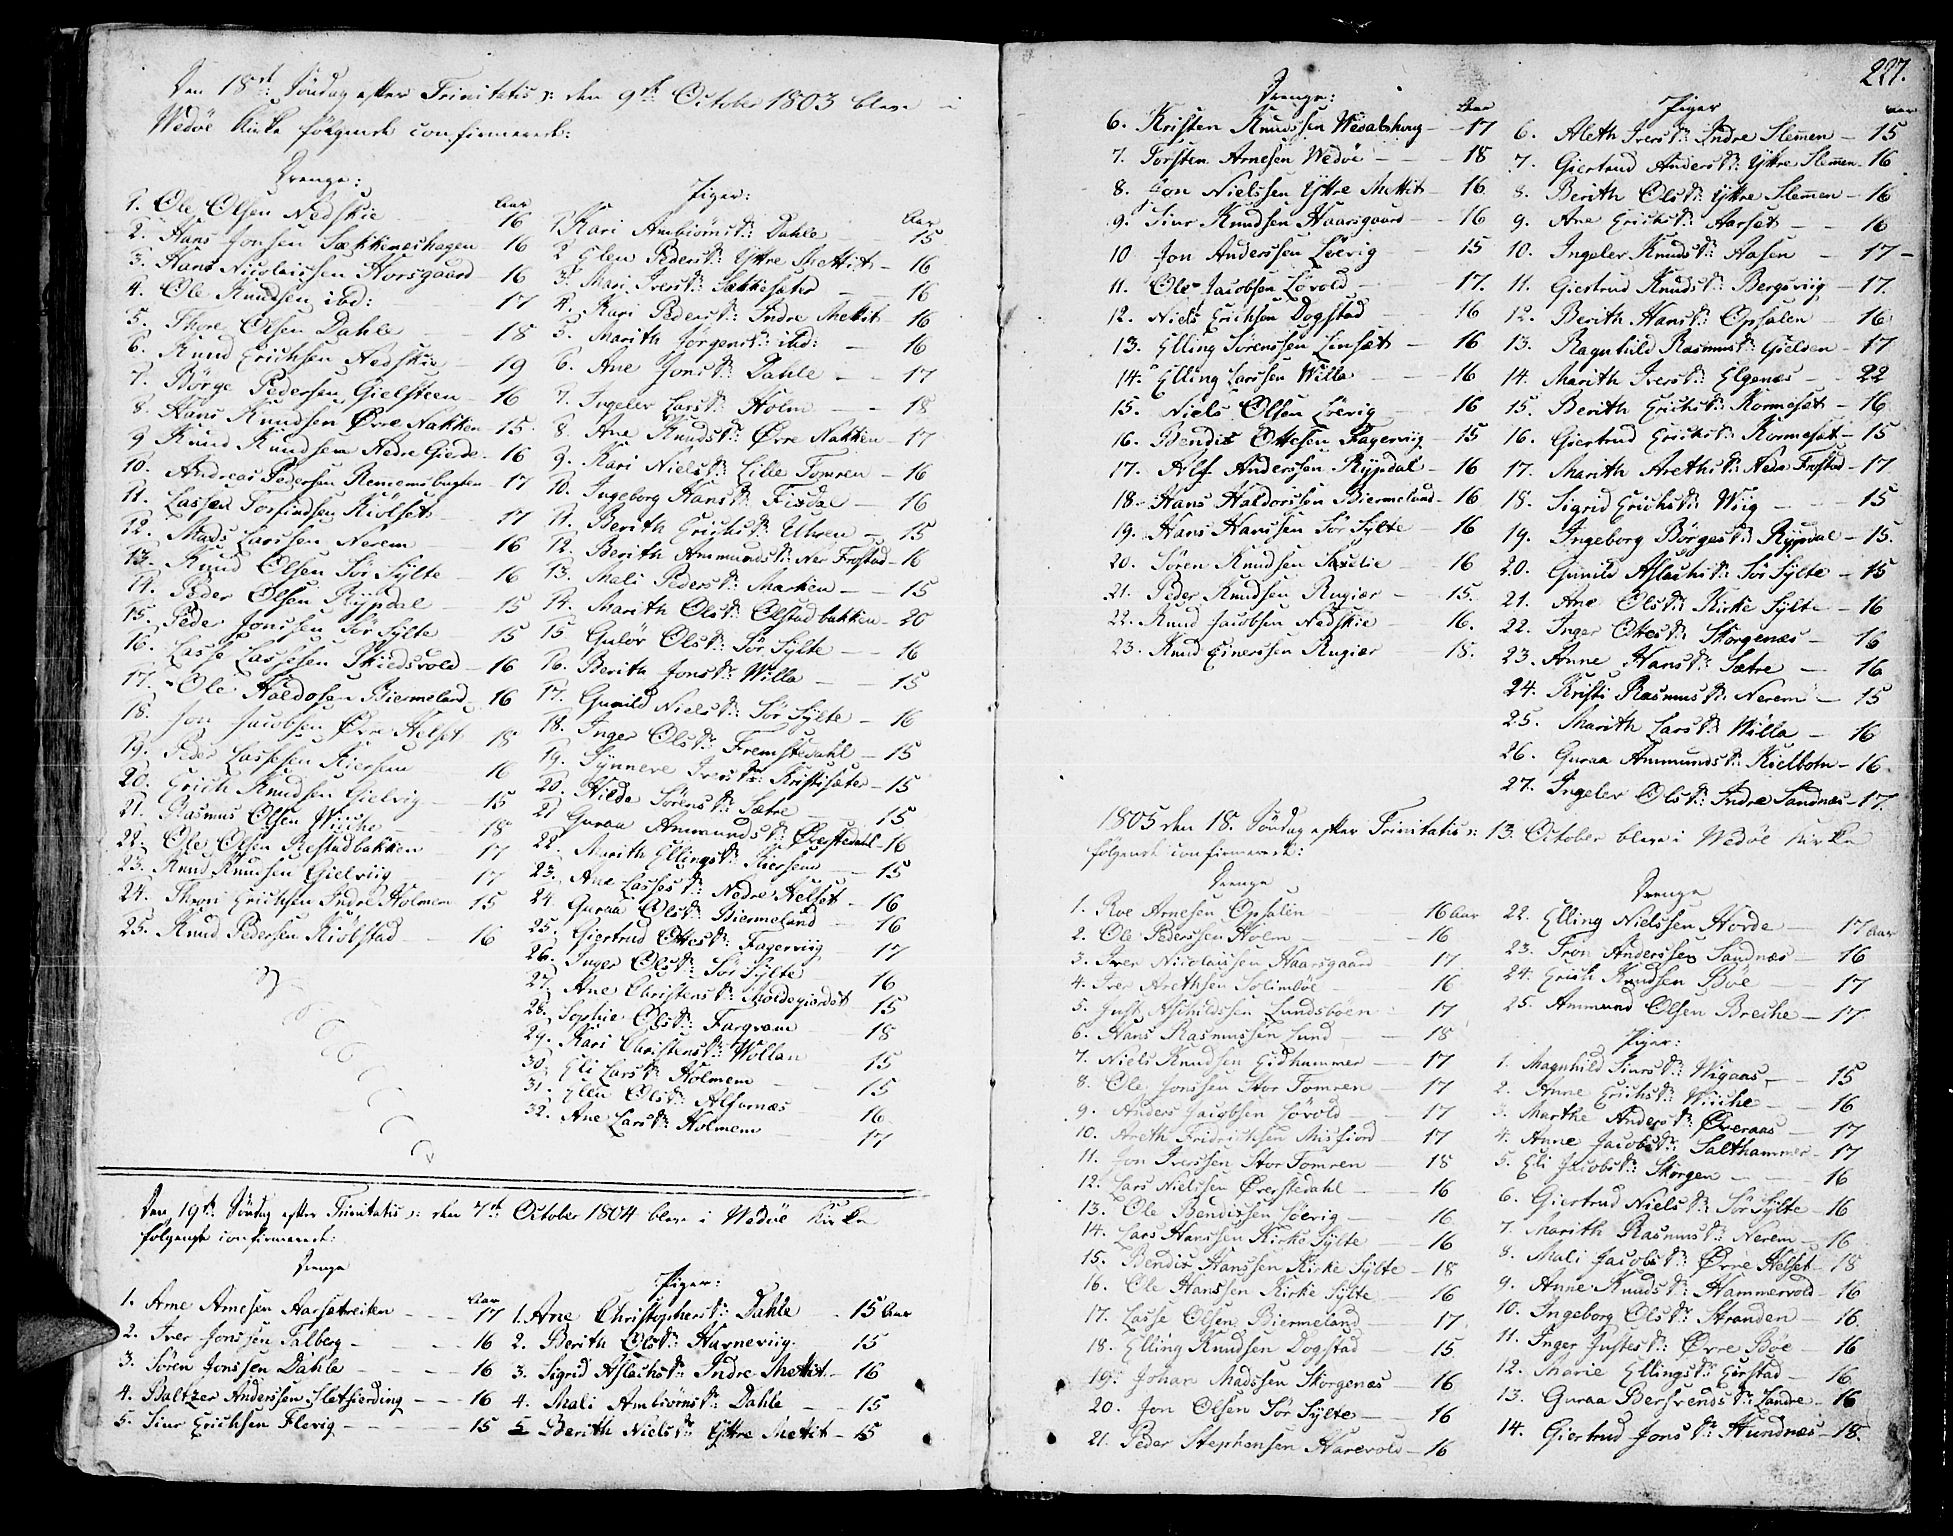 Den 18de Söndag efter Trinitatis : den 9de October 1803 bleve i
Wedöe Kirke følgende confirmerede:
Drenge:
Aar
1. Ole Olsen Nedskie 16
2. Hans Jonsen Sækkeneshagen 16
3. Hans Nicolaissen Horsgaard 16
4. Ole Knudsen ibd: 17
5. Thore Olsen Dahle 18
6. Knud Erichsen Nedskie 19
7. Börge Pedersen Gielsteen 16
8. Hans Knudsen Øvre Nakken 15
9 Knud Knudsen Nedre Giede 16
10. Andreas Pedersen Remmemsbugten 17
11. Lasse Torfindsen Kiölset 17
12. Mads Larssen Nerem 16
13. Knud Olsen Sör Sylte 16
14. Peder Olsen Rypdal 15
15. Peder Jonssen Sör Sylte 15
16. Lasse Lassesen Skiedsvold 16
17. Ole Haldosen Biermeland 16
18. Jon Jacobsen Øvre Helset 18
19. Peder Lassesen Kiersem 16
20. Erich Knudsen Gielvig 15
21. Rasmus Olsen Wiche 18
22. Ole Olsen Restadbakken 17
23. Knud Knudsen Gielviig 17
24. Thron Erichsen Indre Holmem 15
25. Knud Pedersen Kiölstad 16
Piger:
Aar
1 Kari Ambiörnsdr: Dahle 15
2 Elen Pedersdr: Yttre Mettit 16
3. Mari Iversdr: Sækkesæter 16
4. Kari Pedersdr: Indre Mettit 16
5. Marith Jörgensdr: ibd: 16
6. Ane Jonsdr: Dahle 17
7. Ingeler Larsdr: Holm 18
8. Ane Knudsdr: Øvre Nakken 17
9. Kari Nielsdr: Lille Tomren 16
10. Ingeborg Hansdr: Fixdal 16
11. Berith Erichsdr: Uhren 15
12. Berith Ammundsdr: Ner Frostad 16
13. Mali Pedersdr: Marken 15
14. Marith Olsdr: Olstadbakken 20
15 Gulör Olsdr: Sör Sylte 16
16. Berith Jonsdr: Willa 15
17. Gunild Nielsdr: Sör Sylte 16
18. Inger Olsdr: Fremstedahl 15
19. Synneve Iversdr: Kristisæter 15
20. Hilde Sörensdr: Sætre 15
21 Guraa Ammundsdr: Øverstedahl 16
22. Marith Ellingsdr: Kiersem 15
23. Ane Lassesdr: Nedre Helset 16
24. Guraa Olsdr: Biermeland 16
25. Giertrud Ottesdr: Fagerviig 17
26. Inger Olsdr: Sör Sylte 16
27. Ane Christensdr: Moldegierdet 15
28. Sophie Olsdr: Fargram 18
29. Kari Christensdr: Wollan 15
30. Eli Larsdr: Holmem 15
31. Ellen Olsdr: Alfarnæs 16
32. Ane Larsdr: Holmem 17
Den 19de Söndag efter Trinitatis : den 7de October 1804 bleve i Wedöe Kirke
følgende confirmerede:
Drenge
Aar
1. Arne Arnesen Aarsætreiten 17
2. Iver Jonssen Talberg 16
3. Sören Jonssen Dahle 16
4. Baltzer Anderssen Sletfierding 16
5. Siur Erichsen Flevig 15
Piger:
1. Ane Christophersdr: Dahle 15 Aar
2. Berith Olsdr: Havneviig 15
3. Sigrid Aslachsdr: Indre Mettit 16
4. Mali Ambiörnsdr: Dahle 15
5 Berith Nielsdr: Yttre Mettit 15
227.
Drenge:
Aar
6. Kristen Knudssen Wedalshoug 17
7. Torsten Arnesen Wedöe 18
8. Jon Nielssen Yttre Mettit 16
9. Siur Knudsen Haarsgaard 16
10 Jon Anderssen Löevig 15
11. Ole Jacobsen Lövold 17.
12. Niels Erichsen Dogstad 16
13. Elling Sörenssen Linset 16
14. Elling Larssen Willa 16
15. Niels Olsen Löevig 16
16. Bendix Ottesen Fagerviig 15
17. Alf Anderssen Rypdal 16
18. Hans Haldorssen Biermeland 16
19. Hans Hanssen Sör Sylte 16
20. Sören Knudsen Saxelie 16
21. Peder Knudsen Rugiær 15.
22. Knud Jacobsen Nedskie 16.
23. Knud Einerssen Rugiær 18.
Piger
Aar
6. Aleth Iversdr: Indre Slemen 15
7. Giertrud Andersdr: Yttre Slemen 16
8. Berith Olsdr: Yttre Slemen 16
9. Ane Erichsdr: Aarset 16
10. Ingeler Knudsdr: Aasen 17
11. Giertrud Knudsdr: Bergsviig 17.
12. Berith Hansdr: Opsalen 16
13. Ragnhild Rasmusdr: Gielden 17
14. Marith Iversdr: Elgenæs 22
15. Berith Erichsdr: Kormeset 16
16. Giertrud Erichsdr: Kormeset 15
17. Marith Arethsdr: Nedre Frostad 17
18. Sigrid Erichsdr: Wiig 15
19. Ingeborg Börgesdr: Rypdal 15.
20. Gunild Aslachsdr: Sör Sylte 15
21. Ane Olsdr: Kirke Sylte 16
22. Inger Ottesdr: Skorgenæs 16
23. Anne Hansdr: Sætre 16
24. Kristi Rasmusdr: Nerem 15
25. Marith Larsdr: Willa 16
26. Guraa Ammundsdr: Kielbotn 16
27. Ingeler Olsdr: Indre Sandnæs 17.
1805 den 18. Söndag efter Trinitatis : 13. October bleve i Wedöe Kirke
følgende confirmerede:
Drenge
1. Roe Arnesen Opsalen 16 Aar
2. Ole Pederssen Holm 16
3. Iver Nicolaisen Haarsgaard 17
4. Iver Arethsen Solimböe 16
5. Just Aschildssen Lundsboen 17
6. Hans Rasmussen Lund 18
7. Niels Knudsen Eidhammer 17
8. Ole Jonssen Stor Tomren 17
9. Anders Jacobsen Lövold 17
10. Areth Fridrichsen Misfiord 17
11. Jon Iverssen Stor Tomren 18
12. Lars Nielssen Øverstedahl 16
13. Ole Bendixsen Löevig 16
14. Lars Hanssen Kirke Sylte 16
15. Bendix Hanssen Kirke Sylte 18
16. Ole Hanssen Kirke Sylte 16
17. Lasse Olsen Biermeland 17
18. Elling Knudsen Dogstad 15
19. Johan Madssen Skorgenæs 16
20. Jon Olsen Sör Sylte 16
21. Peder Stephensen Harevold 16
Drenge
22. Elling Nielssen Horde 17 Aar
23. Tron Anderssen Sandnæs 16
24. Erich Knudsen Böe 17
25. Ammund Olsen Breihe 17
Piger:
1. Magnhild Siursdr: Wigaas 15
2. Anne Erichsdr: Wiche 16
3. Marthe Andersdr: Øveraas 17
4. Anne Jacobsdr: Salthammer 17
5. Eli Jacobsdr: Skorgen 16
6. Giertrud Nielsdr: Sör Sylte 16
7. Marith Rasmusdr: Nerem 16
8. Mali Jacobsdr: Øvre Helset 18
9. Anne Knudsdr: Hammervold 16
10. Ingeborg Olsdr: Stranden 16
11. Inger Justesdr: Øvre Böe 16
12. Marie Ellingsdr: Eirstad 16
13. Guraa Bersvensdr: Landre 16
14. Giertrud Jonsdr: Hundnæs 18.